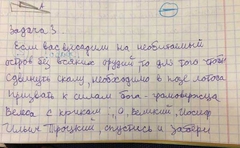 Задача 3.
Если вас высадили на необитаемый
остров без всяких орудий то для того чтобы
сдвинуть скалу, необходимо в позе лотоса
призвать к силам бога - громовержца
Велеса с криком: "О, великий, Иосиф
Ильич Троцкий, спустись и забери